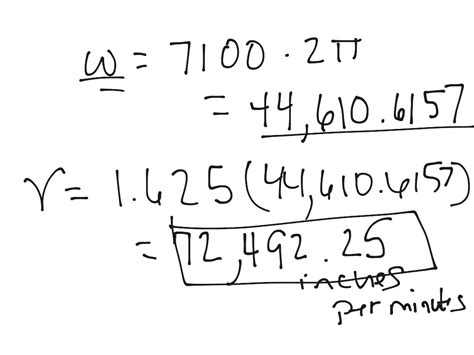 ω = 7100 · 2π
= 44,610.6157
v = 1.625(44,610.6157)
= 72,492.25
inches
per minutes